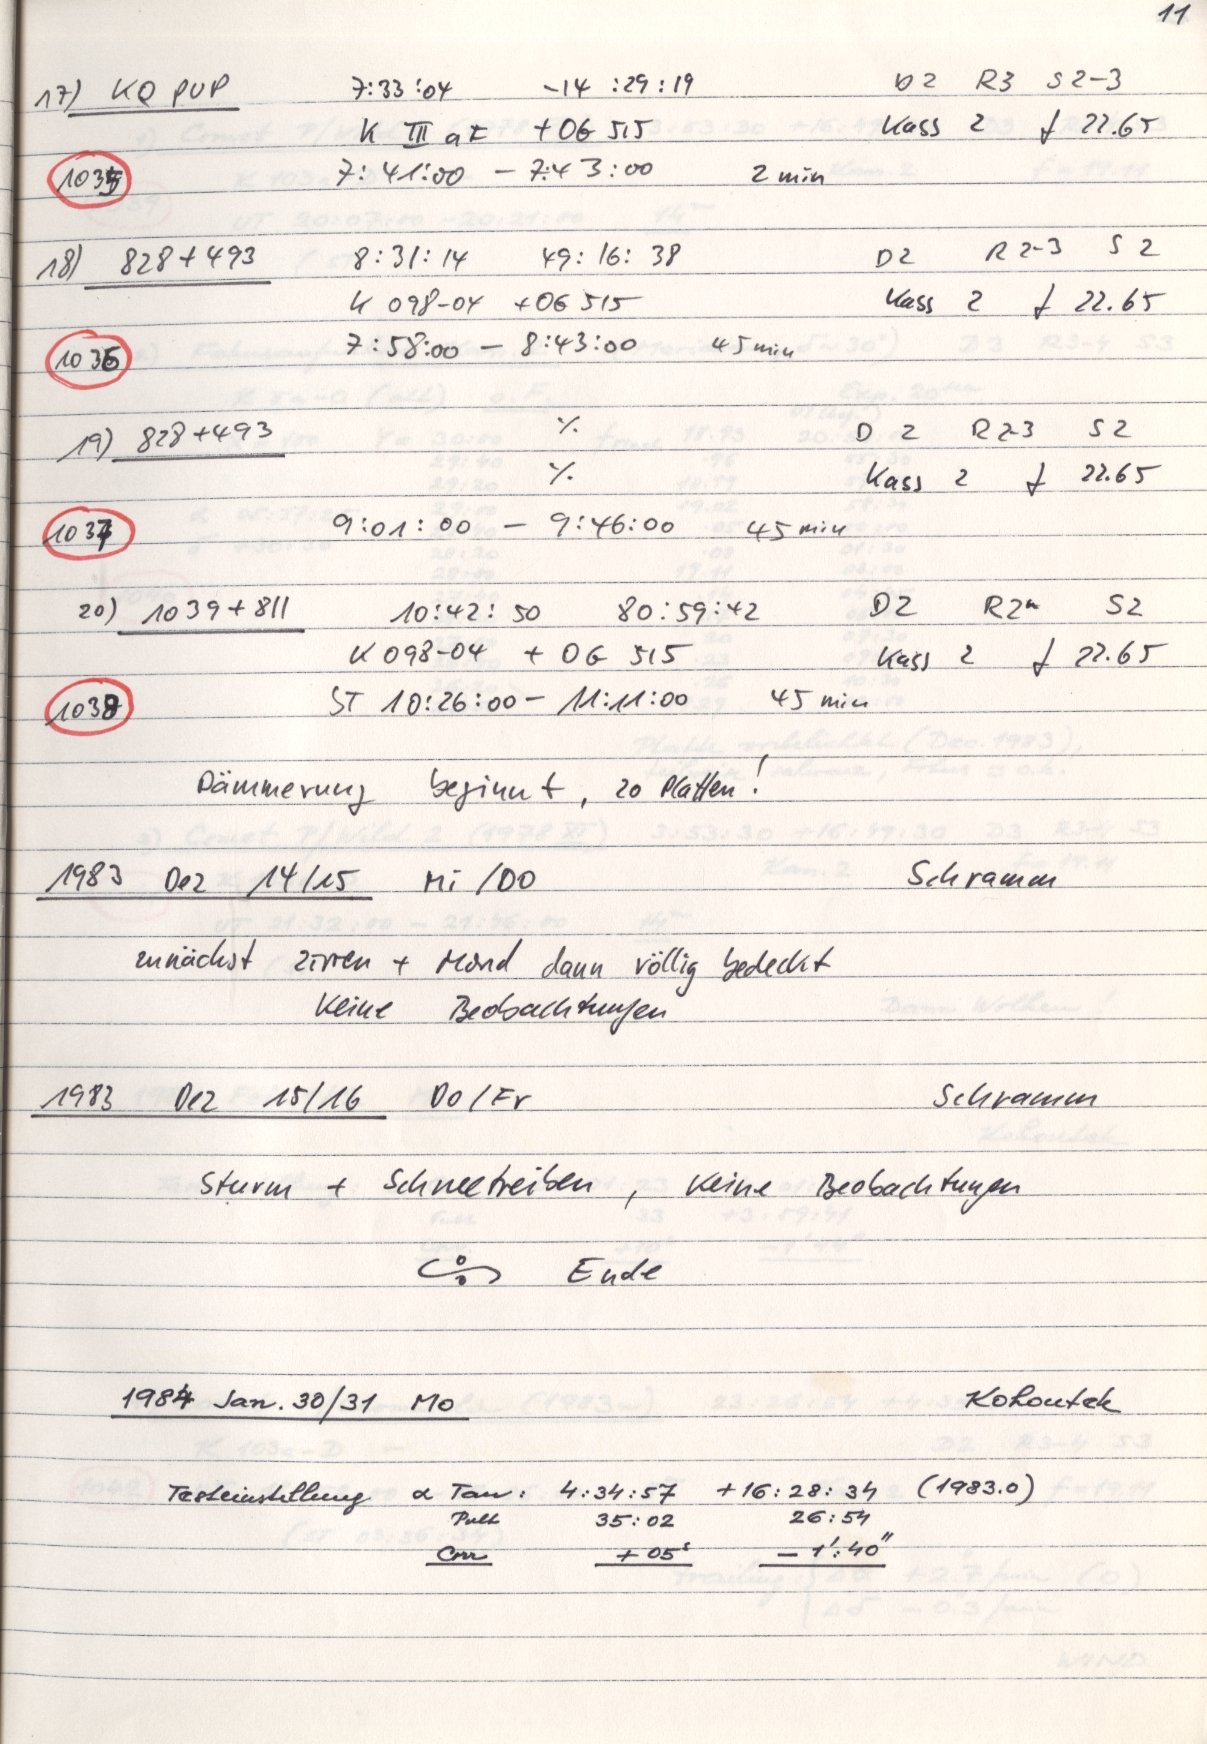 11
17) KQ PUP 7:33:04 -14:29:19 D2 R3 S2-3
K III aF +OG 515 Kass 2 f 22.65
1035 7:41:00 - 7:43:00 2 min
18) 828+493 8:31:14 49:16:38 D2 R2-3 S2
K 098-04 +OG 515 Kass 2 f 22.65
1036 7:58:00 - 8:43:00 45 min
19) 828+493 ٪ D2 R2-3 S2
٪ Kass 2 f 22.65
1037 9:01:00 - 9:46:00 45 min
20) 1039+811 10:42:50 80:59:42 D2 R2 S2
K 098-04 + OG 515 Kass 2 f 22.65
1038 ST 10:26:00 - 11:11:00 45 min
Dämmerung beginnt, 20 Platten!
1983 Dez 14/15 Mi/DO Schramm
zunächst Zirren + Mond dann völlig bedeckt
Keine Beobachtungen
1983 Dez 15/16 Do/Fr Schramm
Sturm + Schneetreiben, Keine Beobachtungen
Ende
1984 Jan. 30/31 Mo Kohoutek
Testeinstellung α Tau: 4:34:57 +16:28:34 (1983.0)
Pult 35:02 26:54
Corr +05ˢ -1':40"